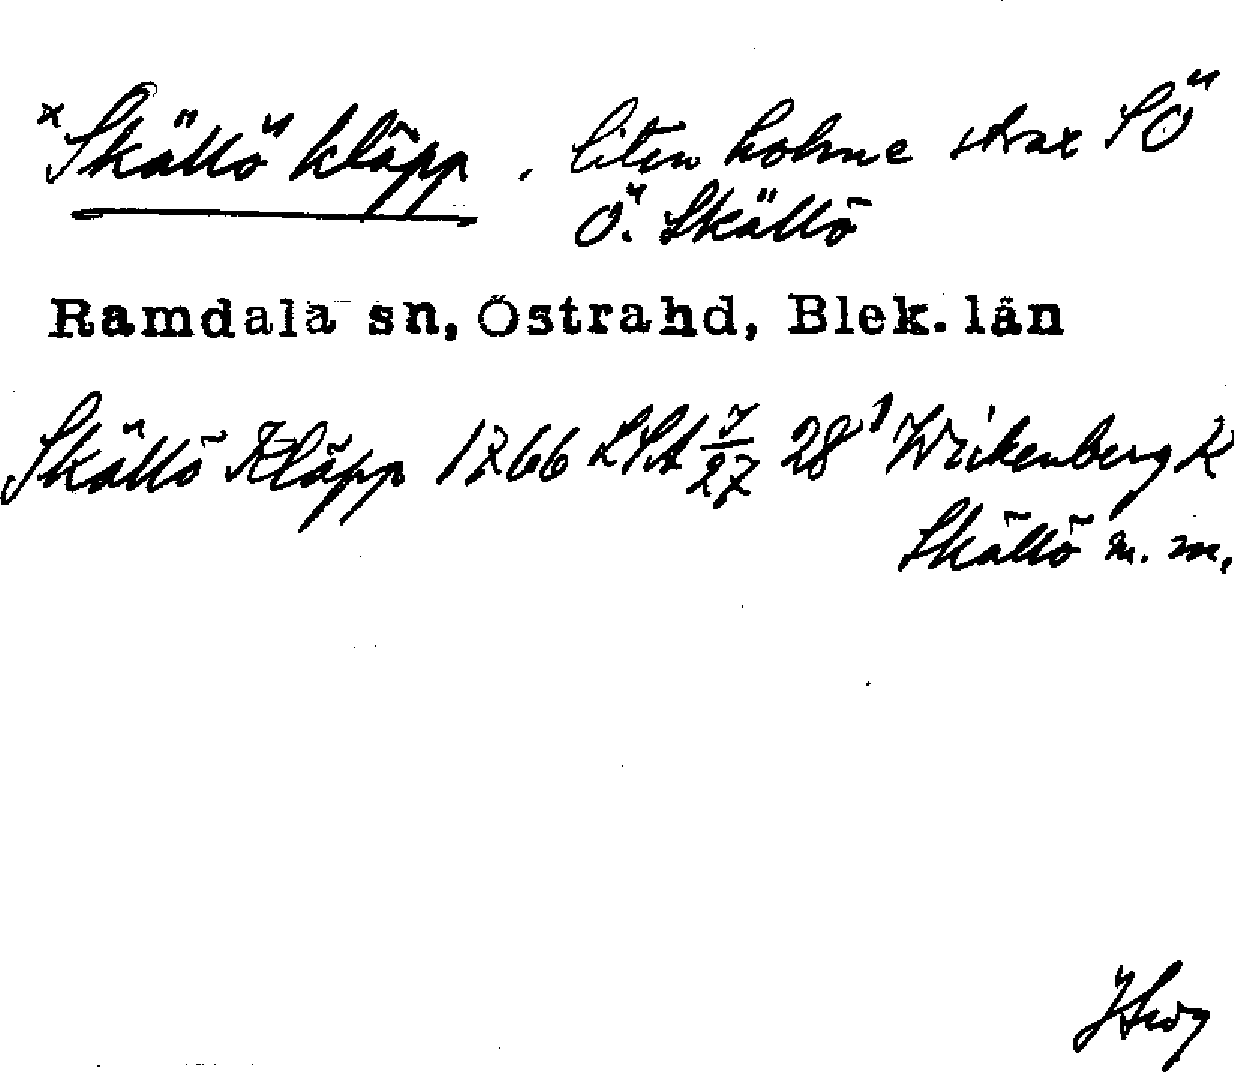 *Skällö kläpp. liten holme strax SÖ
Ö. Skällö
Ramdala sn, Östra hd, Blek. län
Skällö Kläpp 1766 LSA 7/27 28¹ Wirkenberg K
Skällö m. m.